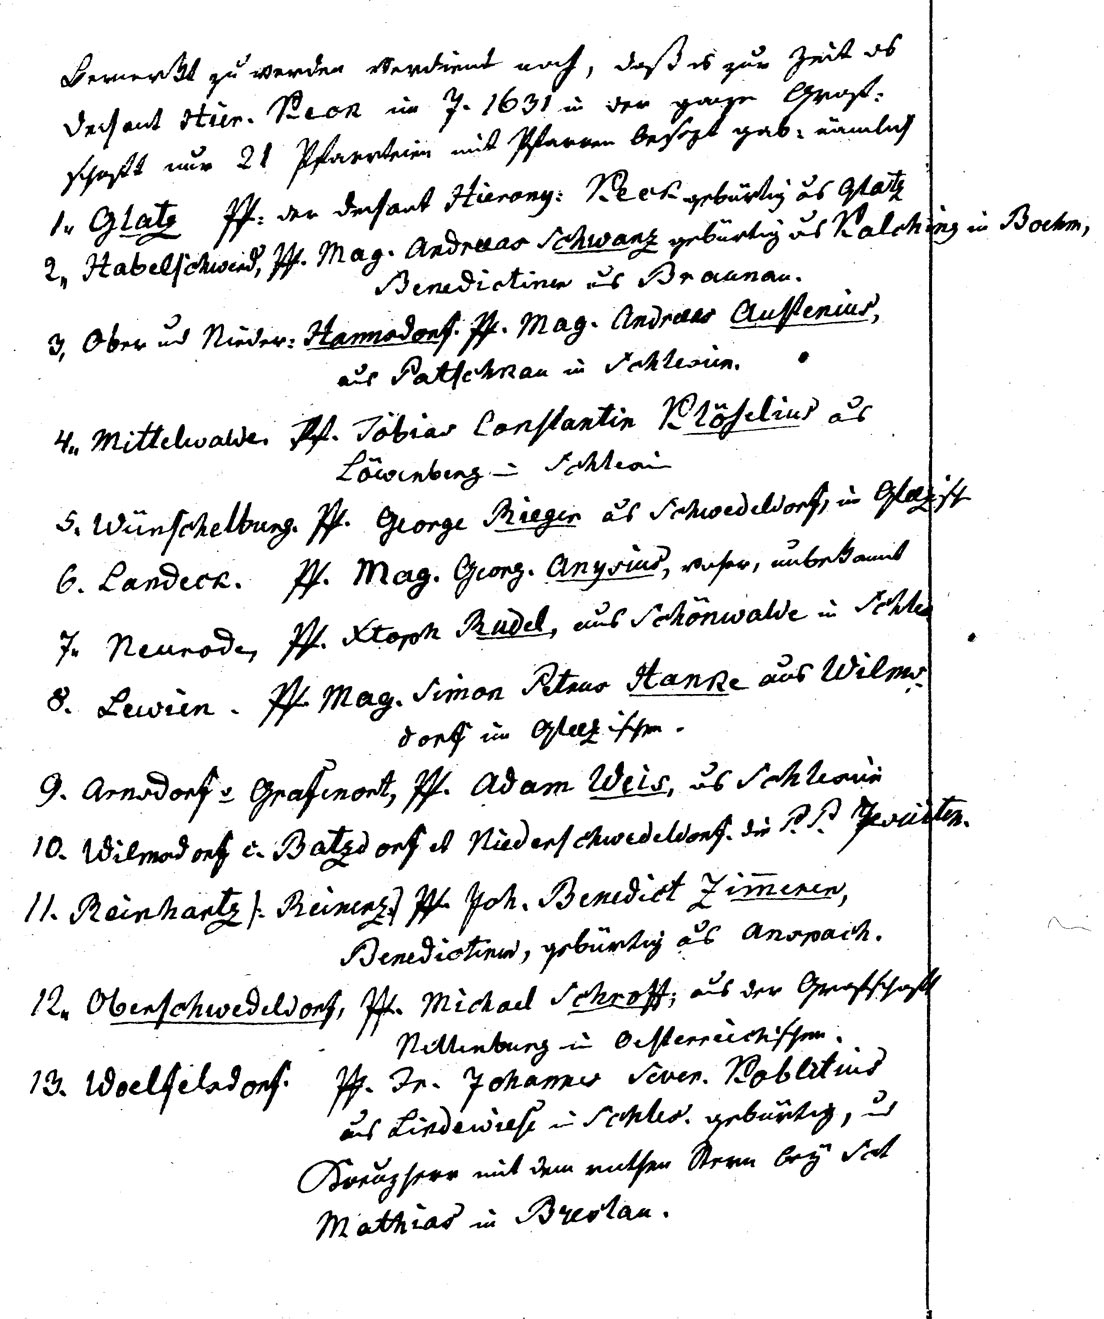 Bemerkt zu werden verdient noch, daß es zur Zeit des
Dechant Hier. Keck im J. 1631 in der ganzen Graf:
schaft nur 21 Pfarrteien mit Pfarren besezt gab: nämlich
1„ Glatz Pf: der Dechant Hierony: Keck gebürtig aus Glatz
2„ Habelschwerd, Pf. Mag. Andreas Schwarz gebürtig aus Kalching in Boehm,
Benedictiner aus Braunau.
3, Ober und Nieder: Hannsdorf. Pf. Mag. Andreas Austenius,
aus Patschkau in Schlesien.
4„ Mittelwalde. Pf. Tobias Constantin Klöselius aus
Löwenberg in Schlesien
5. Wünschelburg. Pf. George Rieger aus Schwedeldorf, im Glazisch
6. Landeck. Pf. Mag. Georg. Anysius, woher, unbekannt
7„ Neurode, Pf. Xtoph Rudel, aus Schönwalde in Schles
8. Lewien. Pf. Mag. Simon Petrus Hanke aus Wilms:
dorf im Glazischen.
9. Arnsdorf v Grafenort, Pf. Adam Weis, aus Schlesien
10. Wilmsdorf c. Batzdorf et Niederschwedeldorf. die P.P. Jesuiten.
11. Reinhartz |: Reinerz :| Pf. Joh. Benedict Zimerer,
Benedictiner, gebürtig aus Anspach.
12„ Oberschwedeldorf, Pf. Michael Schroff, aus der Grafschaft
Nellenburg in Oesterreichischen.
13. Woelfelsdorf. Pf. Fr. Johannes Sever. Koblitius
aus Lindewiese in Schles. gebürtig, u
Kreuzherr mit dem rothen Stern bey Sct
Mathias in Breslau.